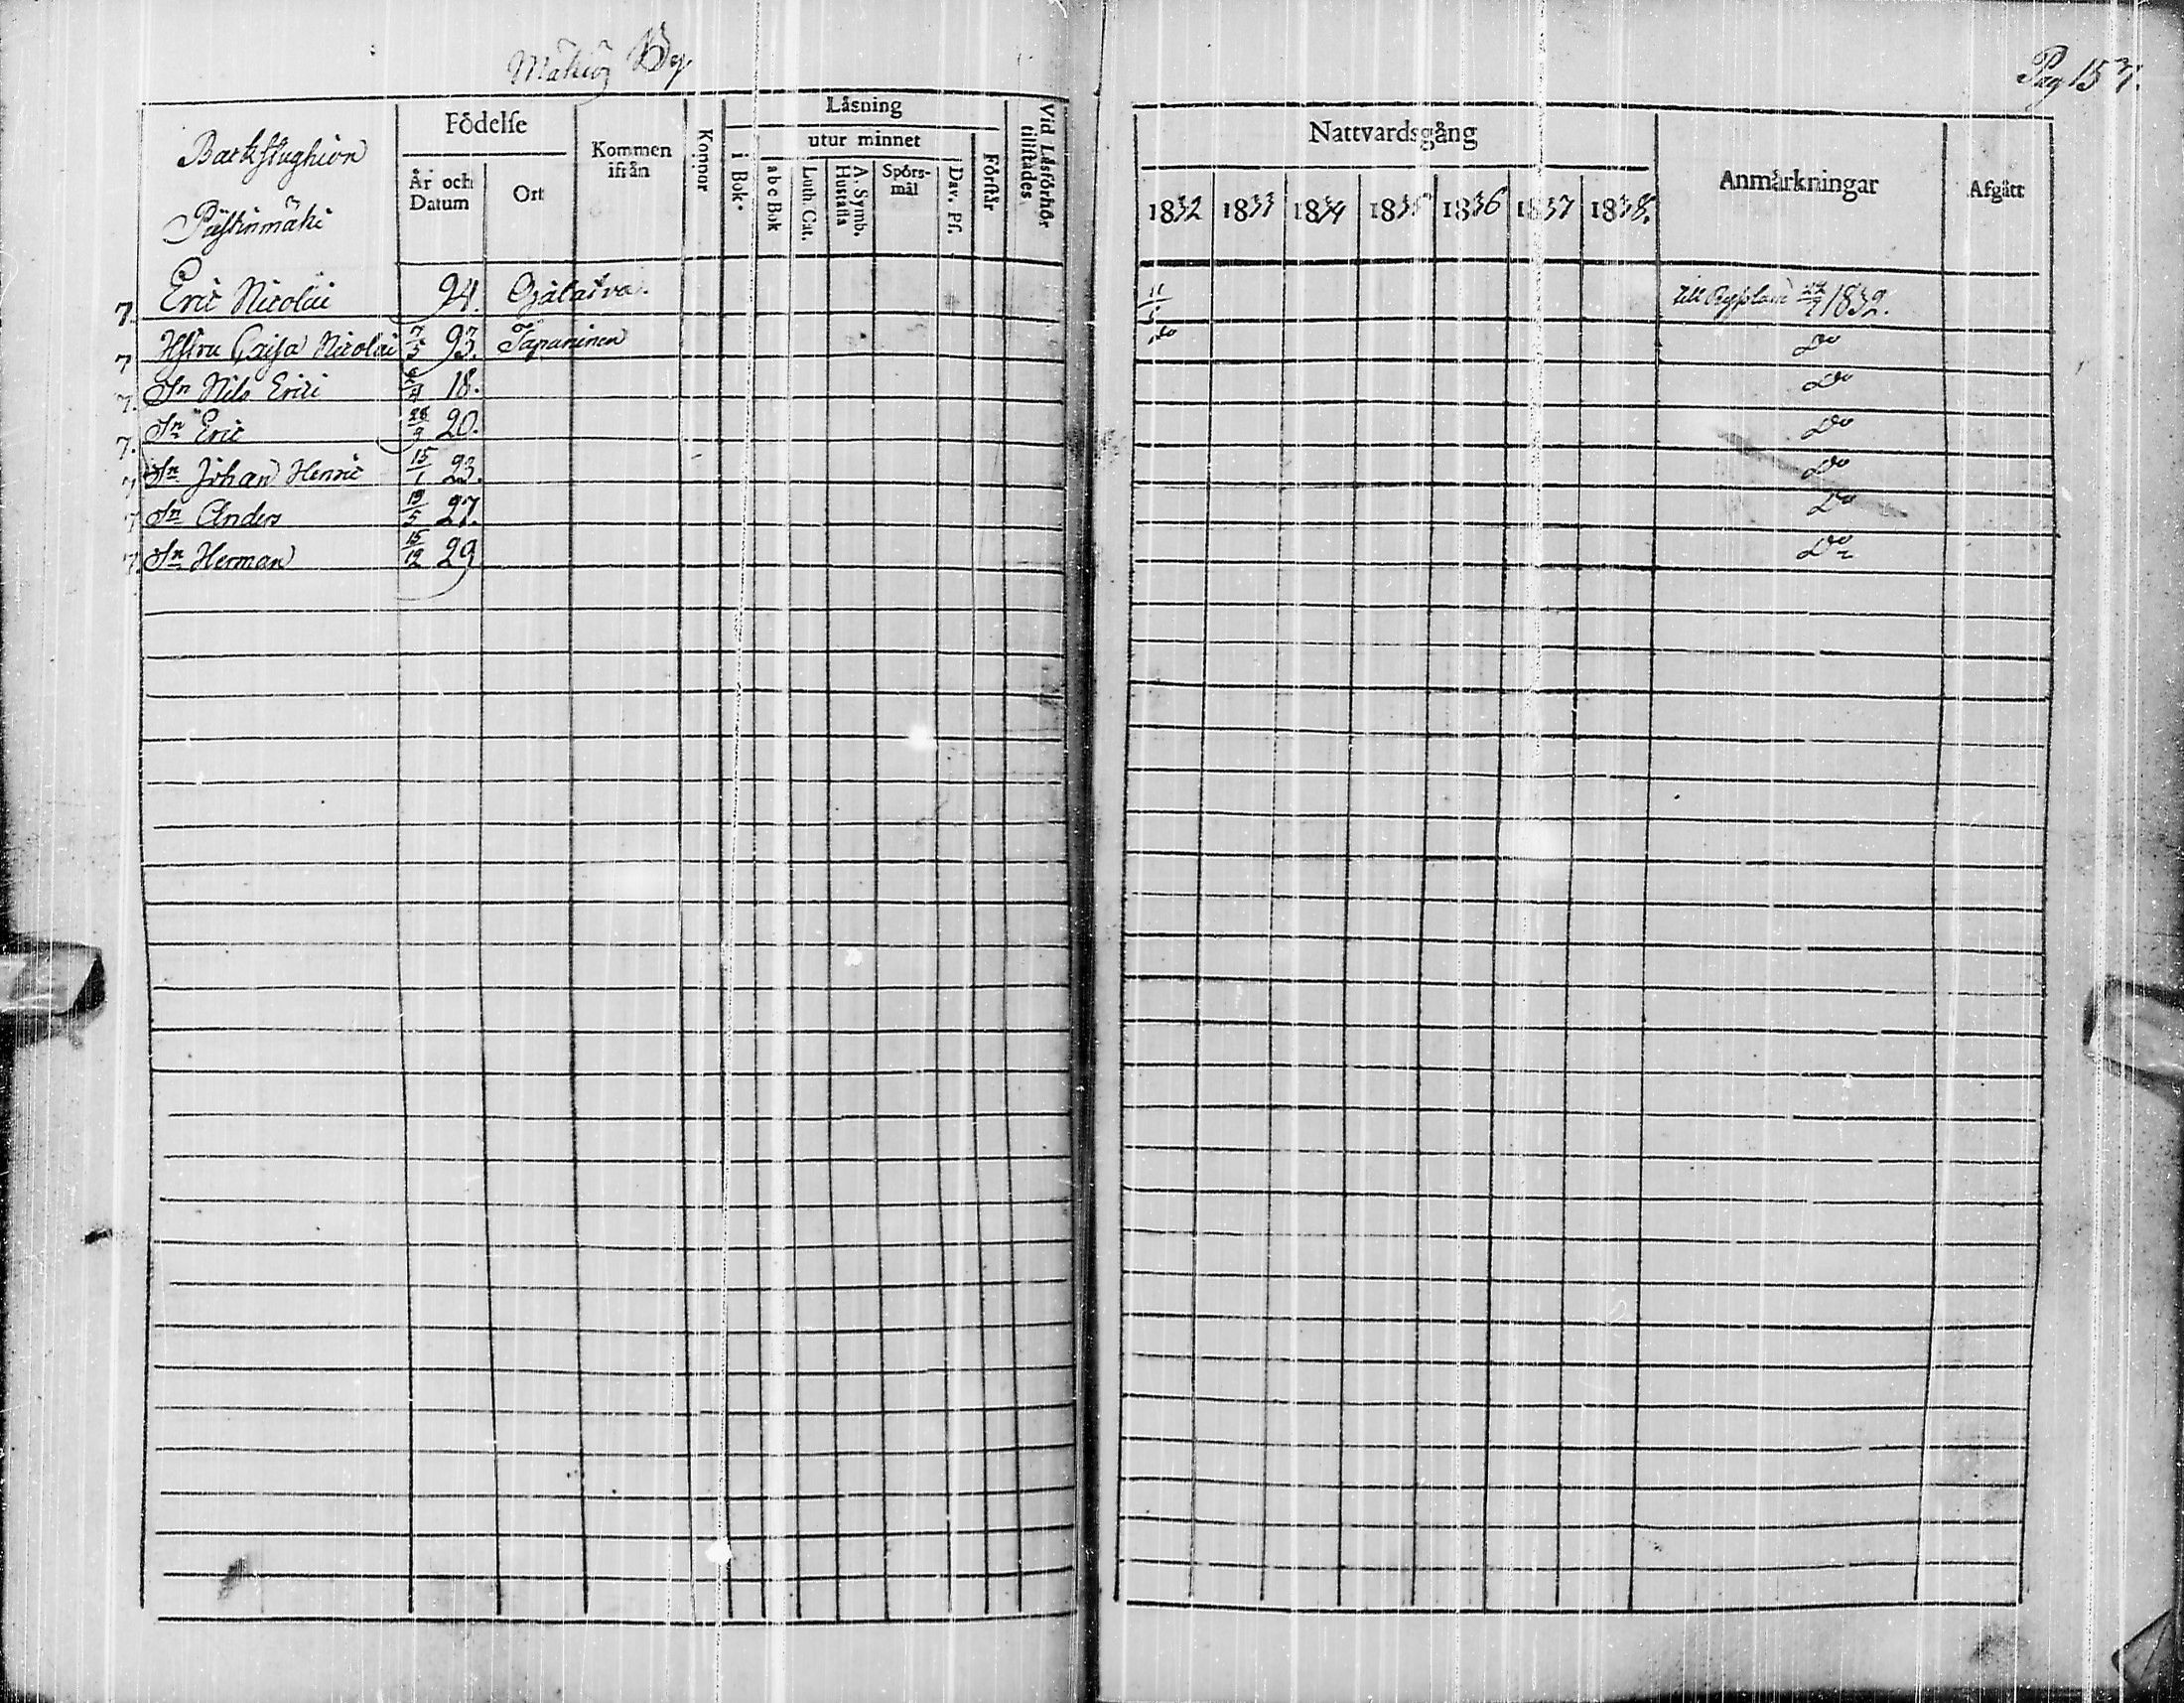 By
Pag 157.
Backstughion
Födelse
År och Datum
Ort
Kommen ifrån
Koppor
Läsning
i Bok.
utur minnet
a b c Bok
Luth. Cat.
A. Symb. Hustafla
Spörsmål
Dav. Ps.
Förstår
Vid Läsförhör tillstädes
Nattvardsgång
1832 1833 1834 1835 1836 1837 1838.
Anmärkningar
Afgått
7. Eric Nicolai 94. 11/5 till 1832.
7 Hstru Caisa Nicolai 7/3 93. Tapaninen do Do
7. Sn Nils Erici 4 18. Do
7. Sn Eric 28/9 20. Do
7 Sn Johan Henric 15/1 23. Do
7 Sn Anders 19/5 27. Do
7. Sn Herman 15/12 29 Do